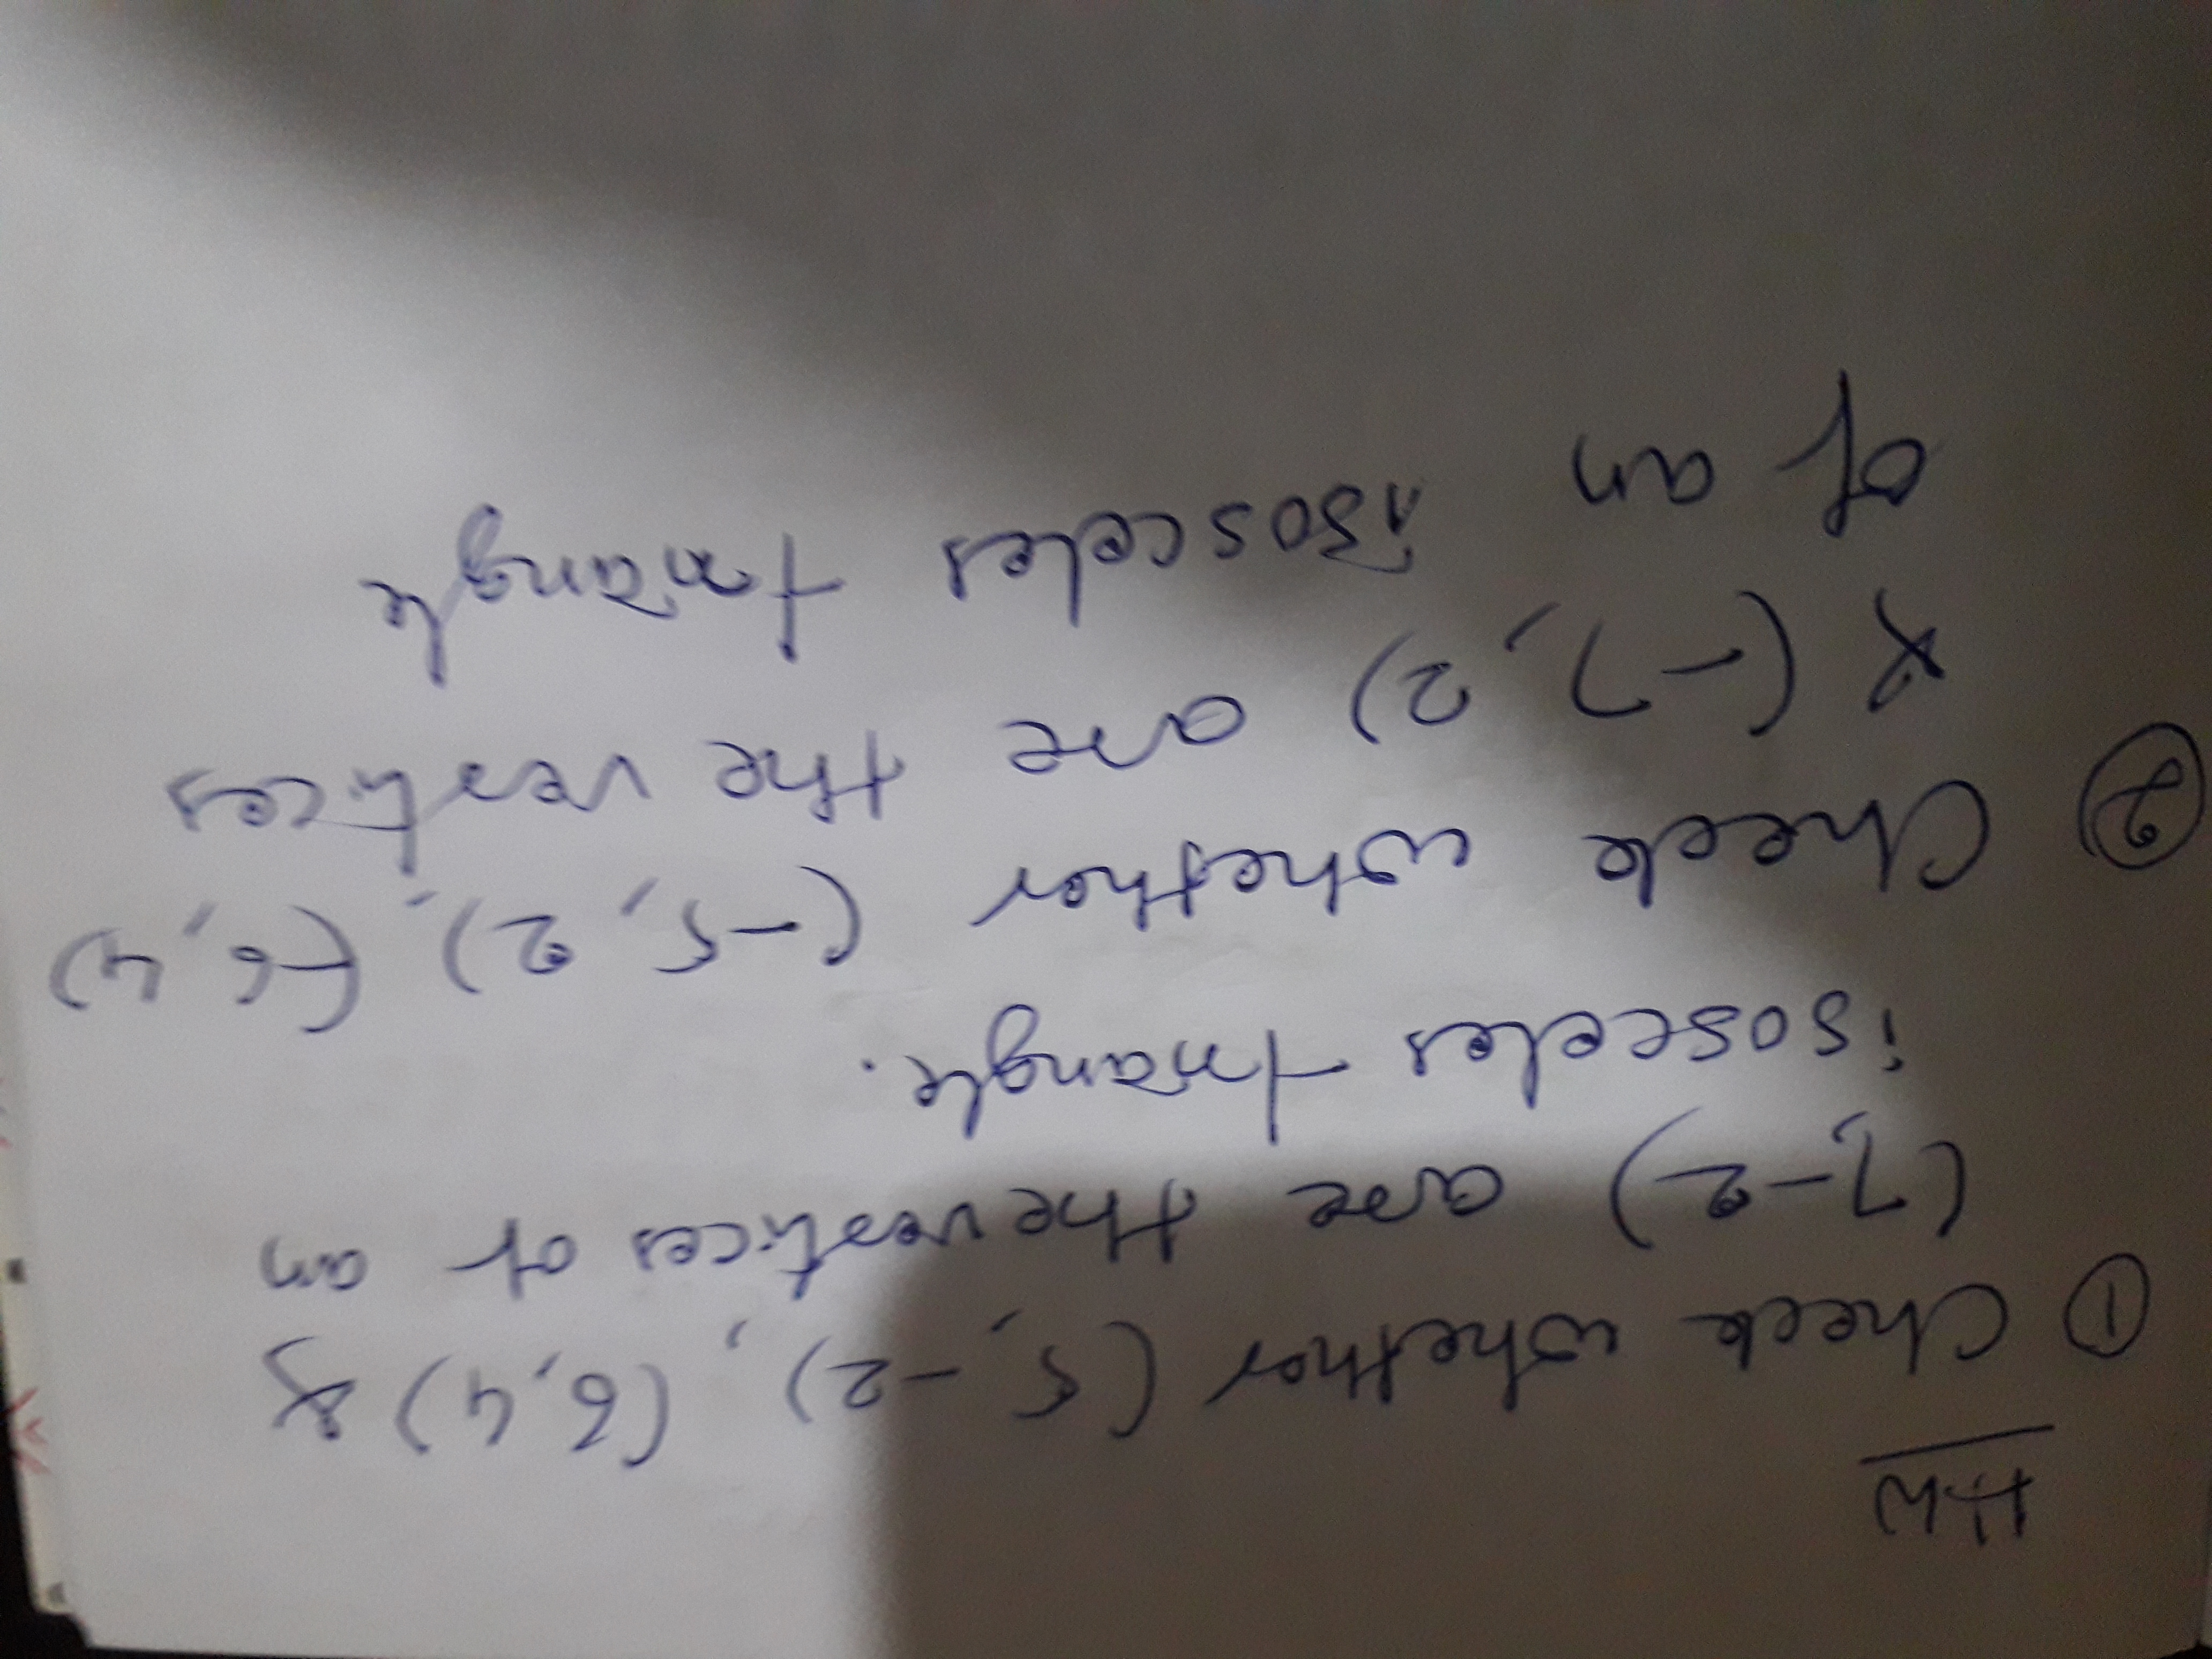 H.W
① Check whether (5, -2), (6, 4) &
(7, -2) are the vertices of an
isosceles triangle.
② Check whether (-5, 2), (-6, 4)
& (-7, 2) are the vertices
of an isosceles triangle